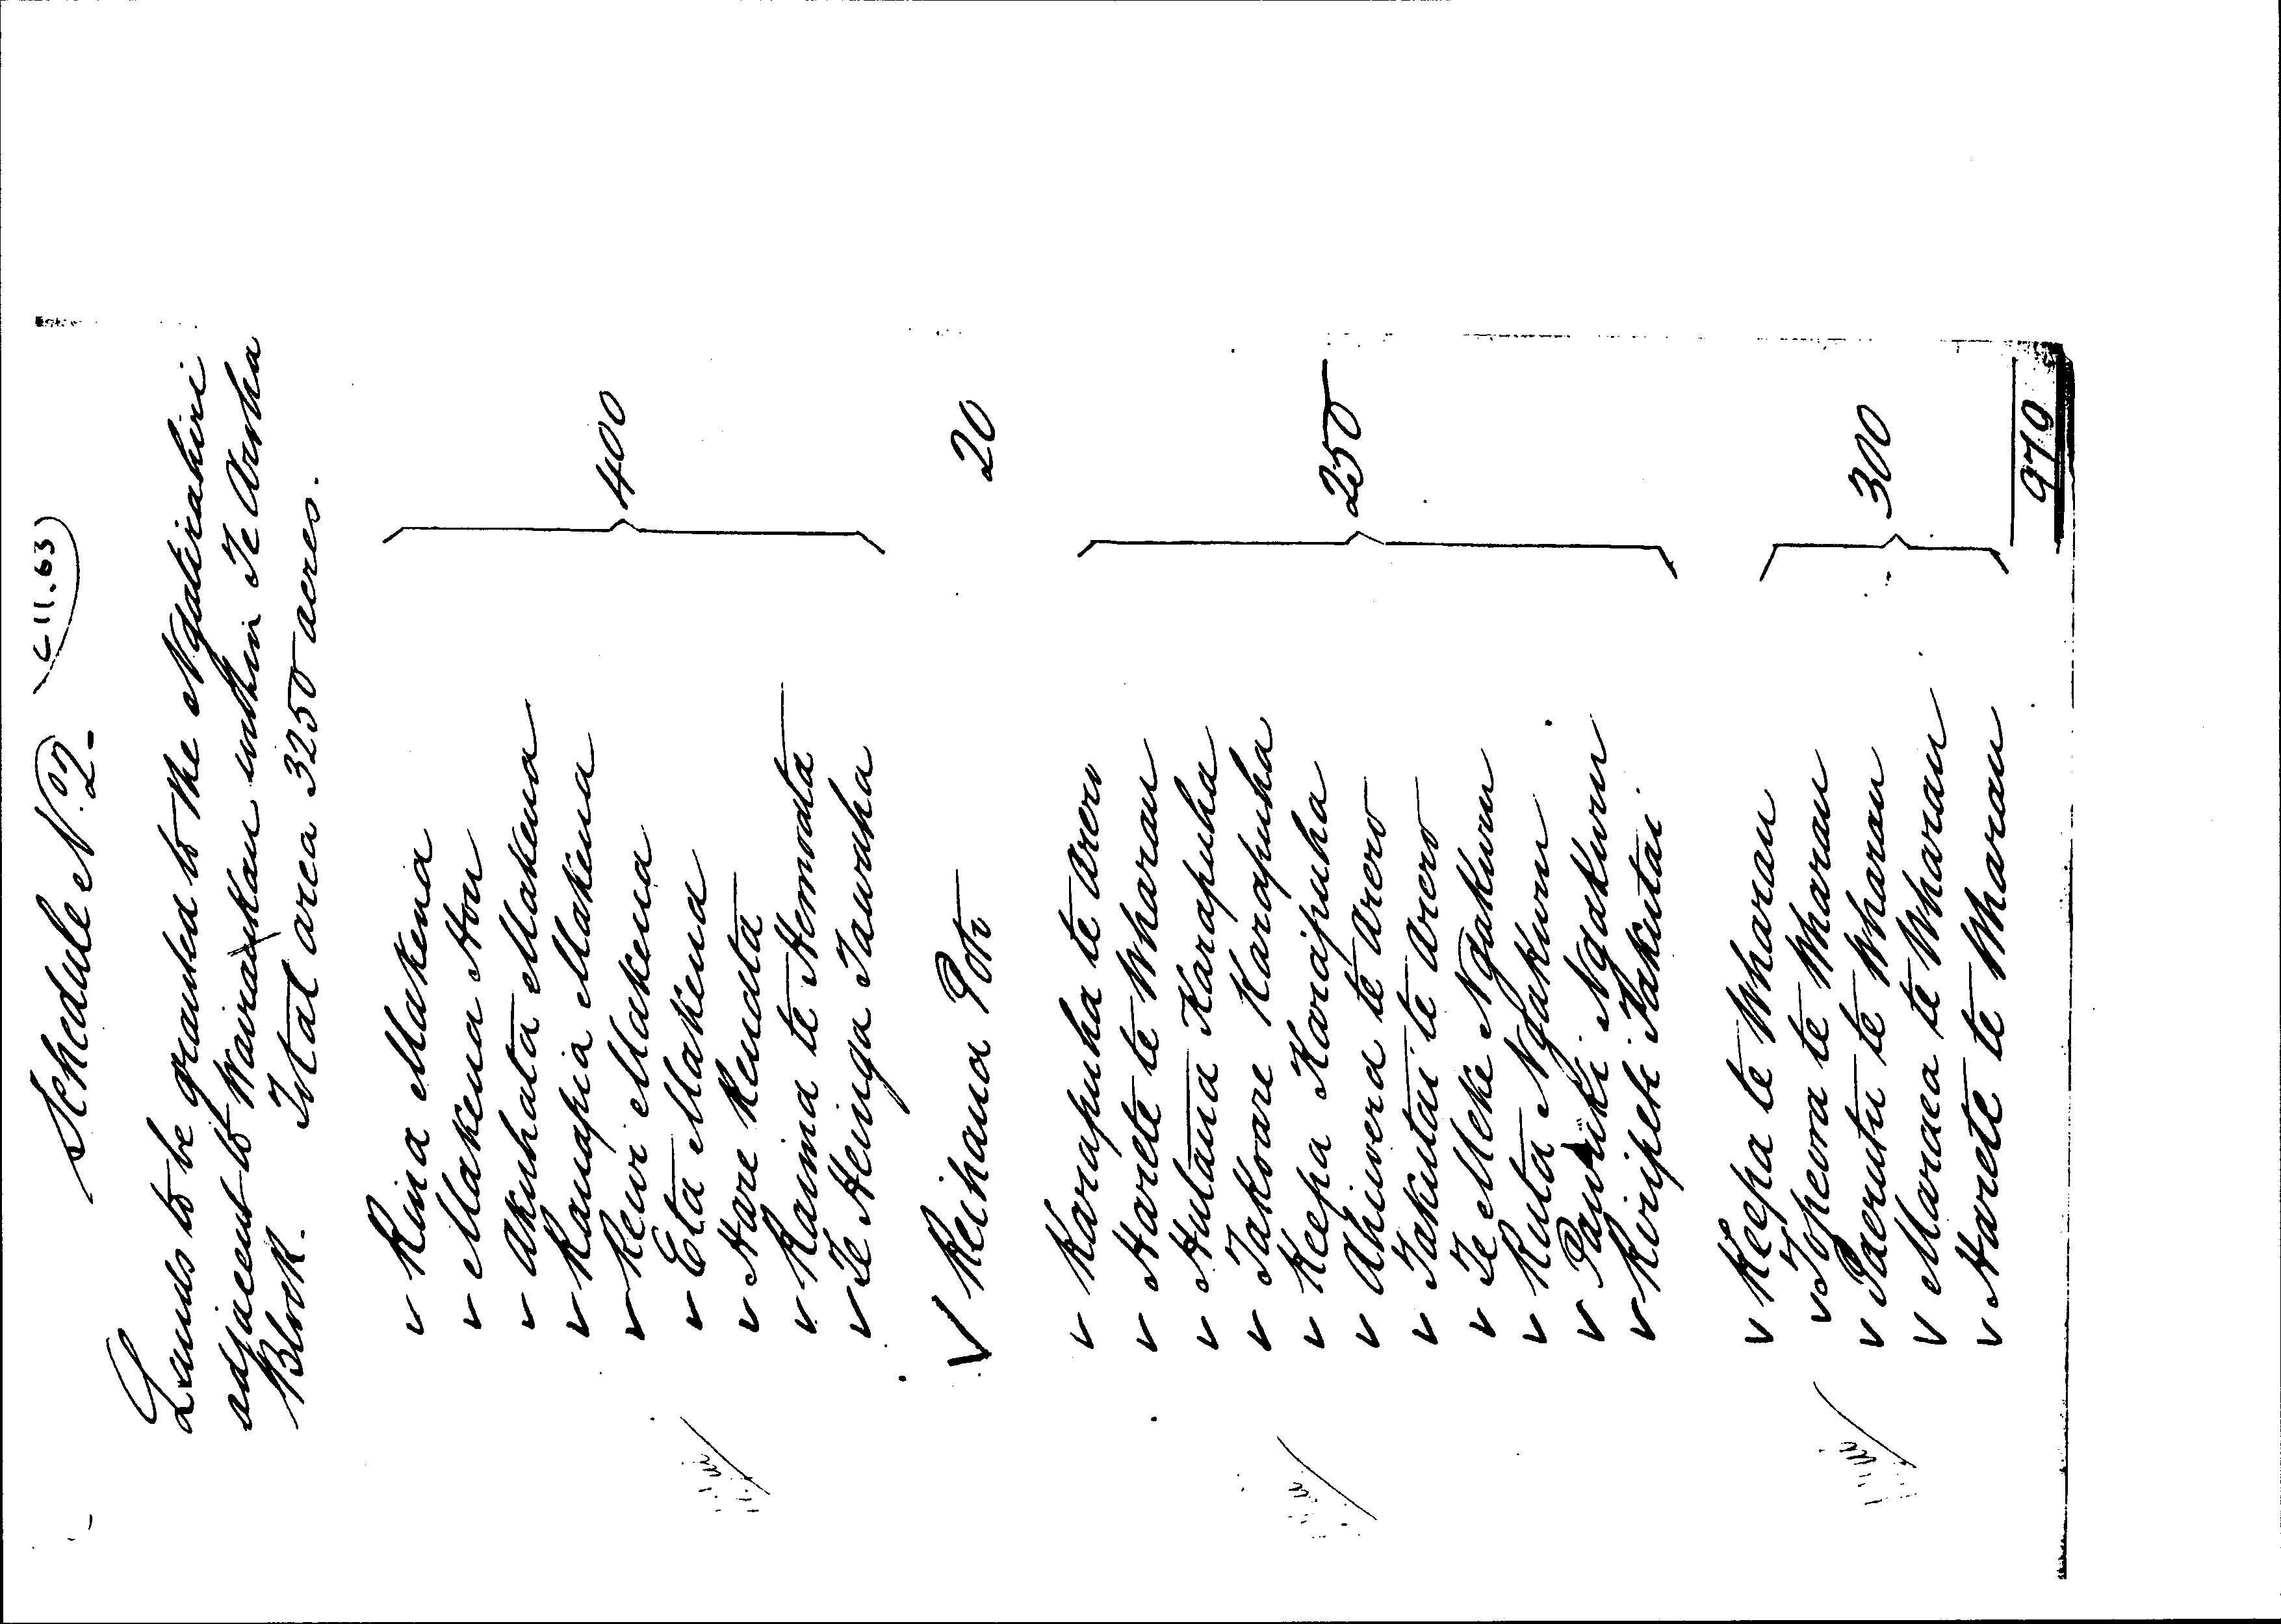 Schedule No. 2 - (11.63)
Lands to be granted to the Ngatirahiri
adjacent to Wairakau within Te Aroha
Block. Total area 3250 acres.
✓ Rina Makena
✓ Makena Hou
✓ Akuhata Makena
✓ Kanapia Makena
✓ Rewi Makena
✓ Eta Makena
✓ Hare Renata 400
✓ Raima te
✓ Te Heinga Tawaha
✓ Reihana Poto 20
✓ Karapuha te Arero
✓ Harete te Wharau
✓ Hutana Karapuha
✓ Takoare Karapuha
✓ Keepa Karapuha
✓ Ahiwera te Arero 250
✓ Takutai te Arero
✓ Te Meke Ngakuru
✓ Ruta Ngakuru
✓ Ngakuru
✓ Miripeti Takutai
✓ Keepa te Wharau
✓ Topeora te Wharau
✓ Paerutu te Wharau 300
✓ Maraea te Wharau
✓ Harete te Wharau
970